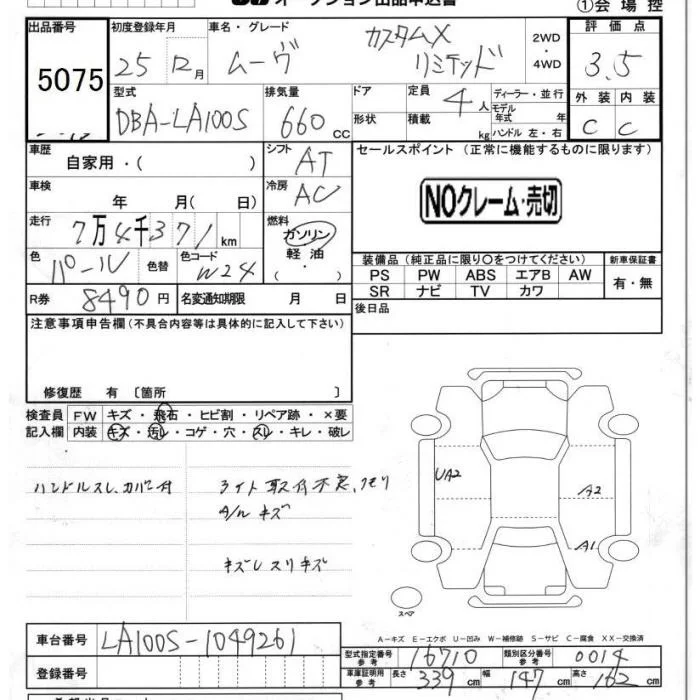 オークション出品申込書
①会場控
出品番号 初度登録年月 車名・グレード 2WD・4WD 評価点
5075 25 12月 ムーヴ カスタムX リミテッド 3.5
型式 排気量 ドア 定員 4人 ディーラー・並行 外装 内装
DBA-LA100S 660cc 形状 積載 kg モデル年式 年 ハンドル 左・右 C C
車歴 自家用・( ) シフト AT セールスポイント (正常に機能するものに限ります)
車検 年 月( 日) 冷房 AC NOクレーム・売切
走行 7万4千371km 燃料 ガソリン 軽油 ・( )
色 パール 色替 色コード W24 装備品(純正品に限り○をつけてください) 新車保証書
PS PW ABS エアB AW 有・無
SR ナビ TV カワ
R券 8490円 名変通知期限 月 日 後日品
注意事項申告欄(不具合内容等は具体的に記入して下さい)
修復歴 有 〔箇所 〕
検査員 FW キズ・飛石・ヒビ割・リペア跡・×要
記入欄 内装 キズ・汚レ・コゲ・穴・スレ・キレ・破レ
ハンドルスレ、カバー付 ライト取付不良、クモリ
A/Wキズ
キズレスリキズ
UA2
A2
A1
スペア
A-キズ E-エクボ U-凹み W-補修跡 S-サビ C-腐食 XX-交換済
車台番号 LA100S-1049261
型式指定番号 参考 16710 類別区分番号 参考 0014
登録番号 車庫証明用 参考 長さ 339cm 幅 147cm 高さ 162cm